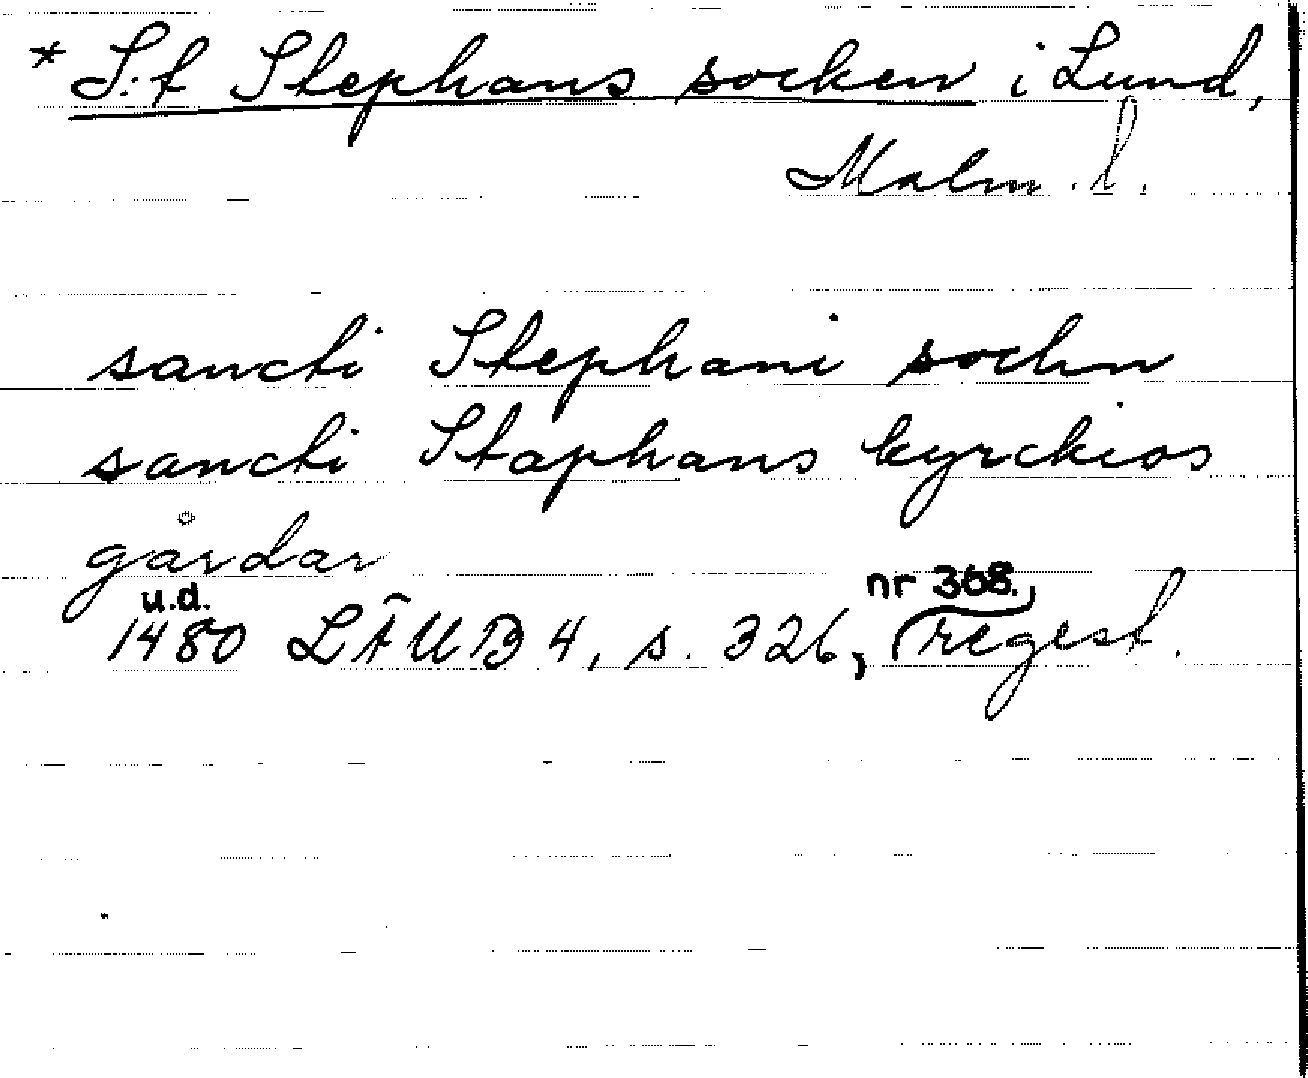 * S:t Stephans socken i Lund,
Malm. l.
sancti Stephani sochn
sancti Staphans kyrckios
gårdar
u.d. nr 368.
1480 LÄUB 4, s. 326, regest.